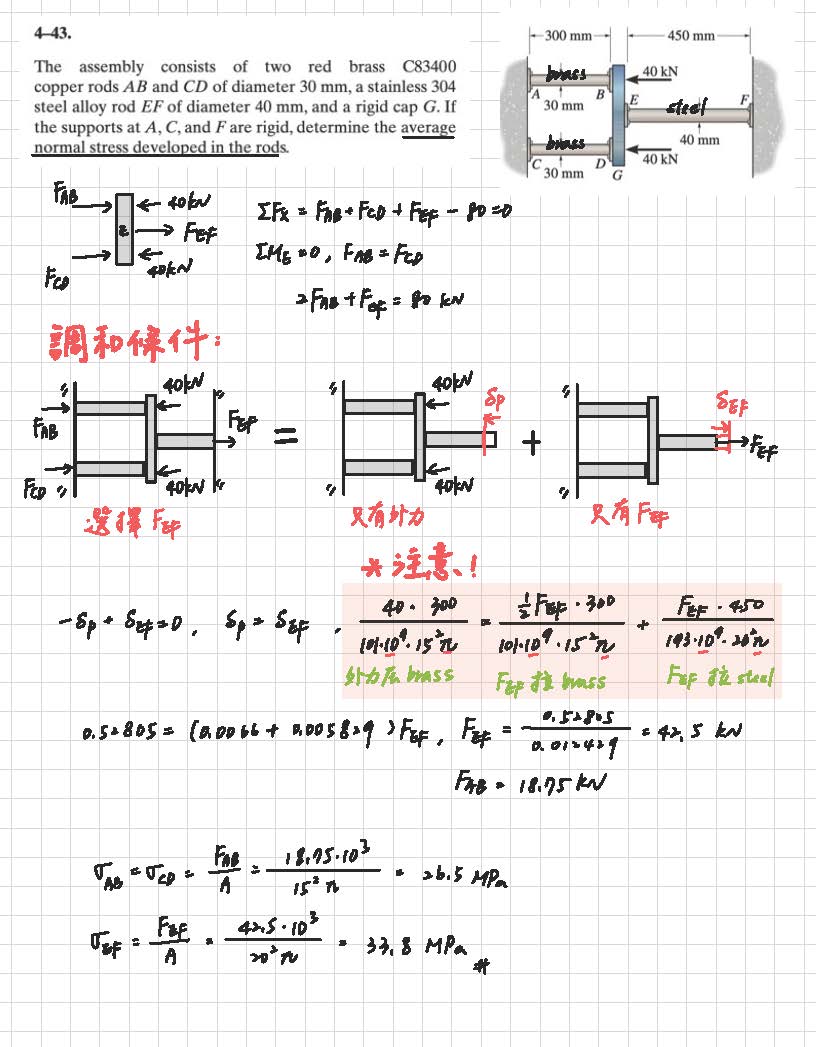 4–43.
The assembly consists of two red brass C83400
copper rods AB and CD of diameter 30 mm, a stainless 304
steel alloy rod EF of diameter 40 mm, and a rigid cap G. If
the supports at A, C, and F are rigid, determine the average
normal stress developed in the rods.
300 mm 450 mm
brass 40 kN
A B E steel F
30 mm
brass 40 mm
C D 40 kN
30 mm G
F_AB 40kN
E F_EF
F_CD 40kN
ΣFx = F_AB + F_CD + F_EF - 80 = 0
ΣM_E = 0, F_AB = F_CD
2F_AB + F_EF = 80 kN
調和條件:
F_AB 40kN F_EF
F_CD 40kN
=
40kN δp
40kN
+
δ_EF F_EF
選擇 F_EF 只有外力 只有 F_EF
*注意、!
-δp + δ_EF = 0, δp = δ_EF, 40 · 300 / 101·10⁹·15²π = ½F_EF · 300 / 101·10⁹·15²π + F_EF · 450 / 193·10⁹·20²π
外力压 brass F_EF 拉 brass F_EF 拉 steel
0.52805 = (0.0066 + 0.005829) F_EF, F_EF = 0.52805 / 0.012429 = 42.5 kN
F_AB = 18.75 kN
σ_AB = σ_CD = F_AB / A = 18.75·10³ / 15²π = 26.5 MPa
σ_EF = F_EF / A = 42.5·10³ / 20²π = 33.8 MPa #